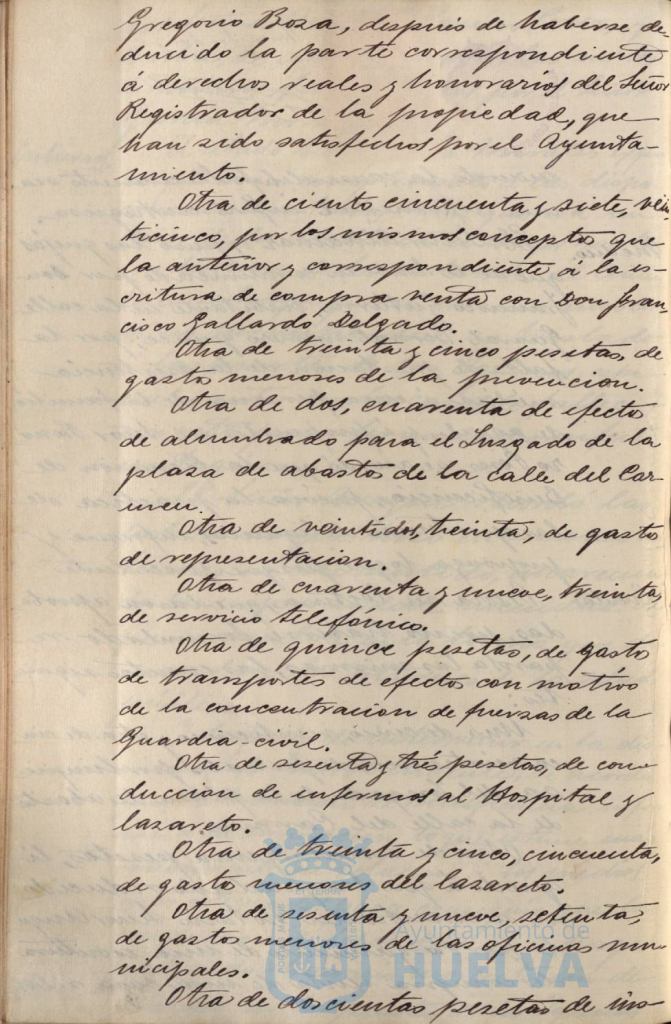 Gregorio Boza, después de haberse de-
ducido la parte correspondiente
á derechos reales y honorarios del Señor
Registrador de la propiedad, que
han sido satisfechos por el Ayunta-
miento.
Otra de ciento cincuenta y siete, vein-
ticinco, por los mismos conceptos que
la anterior y correspondiente á la es-
critura de compra venta con Don Fran-
cisco Gallardo Delgado.
Otra de treinta y cinco pesetas, de
gastos menores de la prevencion.
Otra de dos, cuarenta de efectos
de alumbrado para el Juzgado de la
plaza de abastos de la calle del Car-
men.
Otra de veintidos, treinta, de gastos
de representacion.
Otra de cuarenta y nueve, treinta,
de servicio telefónico.
Otra de quince pesetas, de gastos
de transportes de efectos con motivo
de la concentracion de fuerzas de la
Guardia-civil.
Otra de sesenta y trés pesetas, de con-
duccion de enfermos al Hospital y
lazareto.
Otra de treinta y cinco, cincuenta,
de gastos menores del lazareto.
Otra de sesenta y nueve, setenta,
de gastos menores de las oficinas mu-
nicipales.
Otra de doscientas pesetas de ins-
Ayuntamiento de
HUELVA